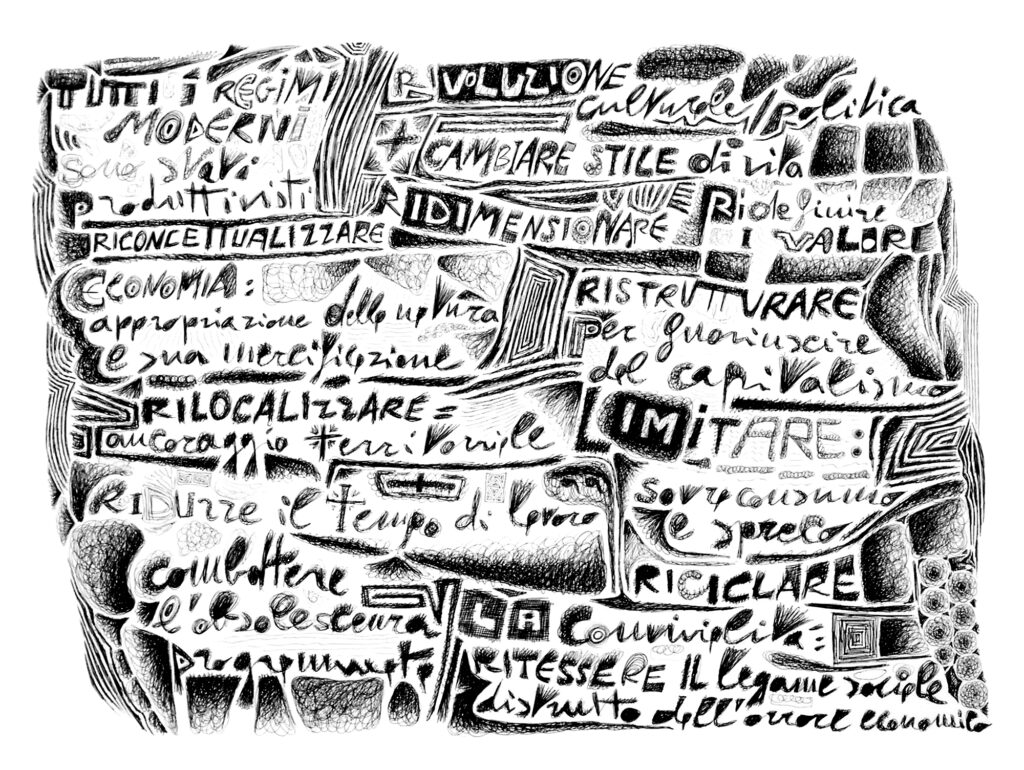 TUTTI I REGIMI
MODERNI
sono stati
produttivisti
RICONCETTUALIZZARE
ECONOMIA:
appropriazione della natura
e sua mercificazione
RILOCALIZZARE =
ancoraggio territoriale
RIDURRE il tempo di lavoro
combattere
l'obsolescenza
programmata
RIVOLUZIONE
culturale/politica
+ CAMBIARE STILE di vita
RIDIMENSIONARE
Ridefinire
I VALORI
RISTRUTTURARE
per fuoriuscire
del capitalismo
LIMITARE:
sovraconsumo
e spreco
RICICLARE
LA Convivialità:
RITESSERE IL legame sociale
distrutto dell'orrore economico